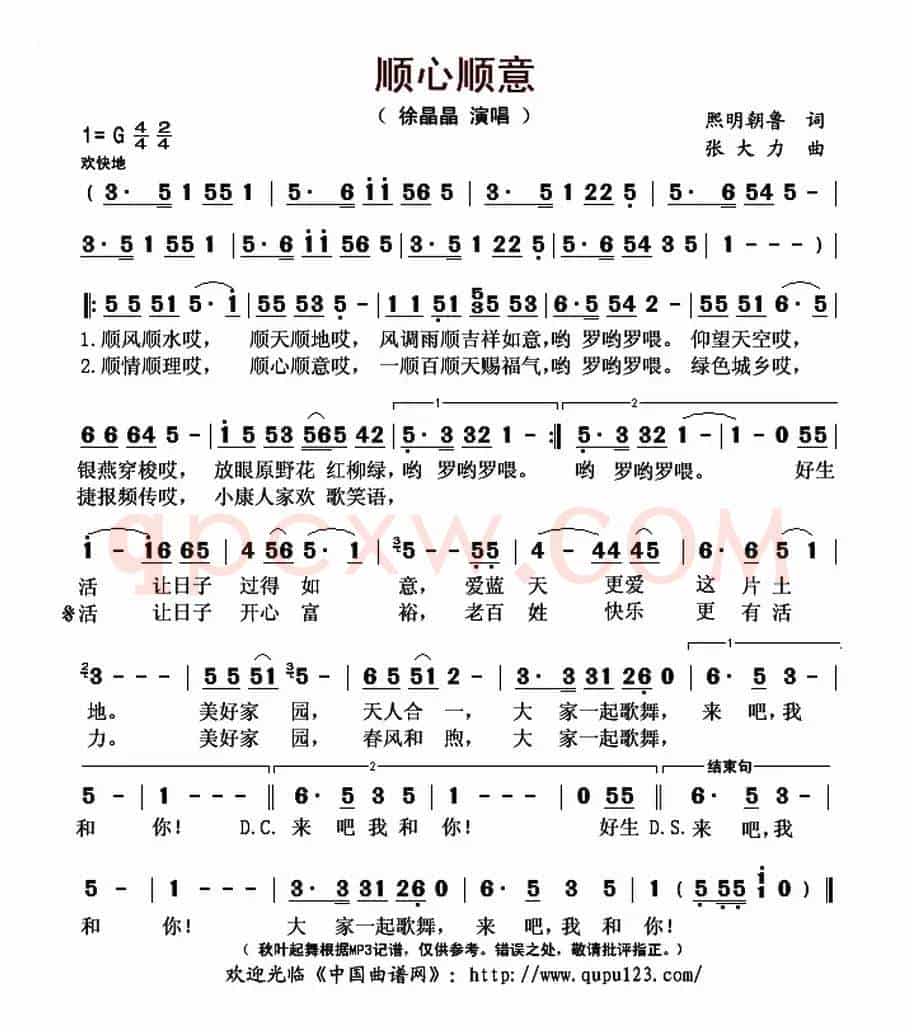 顺心顺意
( 徐晶晶 演唱 )
1= G 4/4 2/4
熙明朝鲁 词
张大力 曲
欢快地
( 3· 5 1 55 1 | 5· 6 i i 56 5 | 3· 5 1 22 5 | 5· 6 54 5 - |
3· 5 1 55 1 | 5· 6 i i 56 5 | 3· 5 1 22 5 | 5· 6 54 3 5 | 1 - - - )
|: 5 5 51 5· i | 55 53 5 - | 1 1 51 5/3 5 53 | 6· 5 54 2 - | 55 51 6· 5 |
1.顺风顺水哎, 顺天顺地哎, 风调雨顺吉祥如意,哟 罗哟罗喂。仰望天空哎,
2.顺情顺理哎, 顺心顺意哎, 一顺百顺天赐福气,哟 罗哟罗喂。绿色城乡哎,
1 2
6 6 64 5 - | i 5 53 565 42 | 5· 3 32 1 - :| 5· 3 32 1 - | 1 - 0 55 |
银燕穿梭哎, 放眼原野花 红柳绿,哟 罗哟罗喂。 哟 罗哟罗喂。 好生
捷报频传哎, 小康人家欢 歌笑语,
qpcxw.COM
i - i6 65 | 4 56 5· 1 | 35 - - 55 | 4 - 44 45 | 6· 6 5 1 |
活 让日子 过得 如 意, 爱蓝 天 更爱 这 片 土
※活 让日子 开心 富 裕, 老百 姓 快乐 更 有 活
1
23 - - - | 5 5 51 35 - | 6 5 51 2 - | 3· 3 31 26 0 | 6· 5 3 - |
地。 美好家 园, 天人合 一, 大 家一起歌舞, 来 吧,我
力。 美好家 园, 春风和 煦, 大 家一起歌舞,
2 结束句
5 - | 1 - - - || 6· 5 3 5 | 1 - - - | 0 55 || 6· 5 3 - |
和 你! D.C. 来 吧我 和 你! 好生 D.S. 来 吧,我
5 - | 1 - - - | 3· 3 31 26 0 | 6· 5 3 5 | 1 ( 5 55 i/1 0 ) ||
和 你! 大 家一起歌舞, 来 吧,我 和 你!
( 秋叶起舞根据MP3记谱,仅供参考。错误之处,敬请批评指正。)
欢迎光临《中国曲谱网》: http://www.qupu123.com/